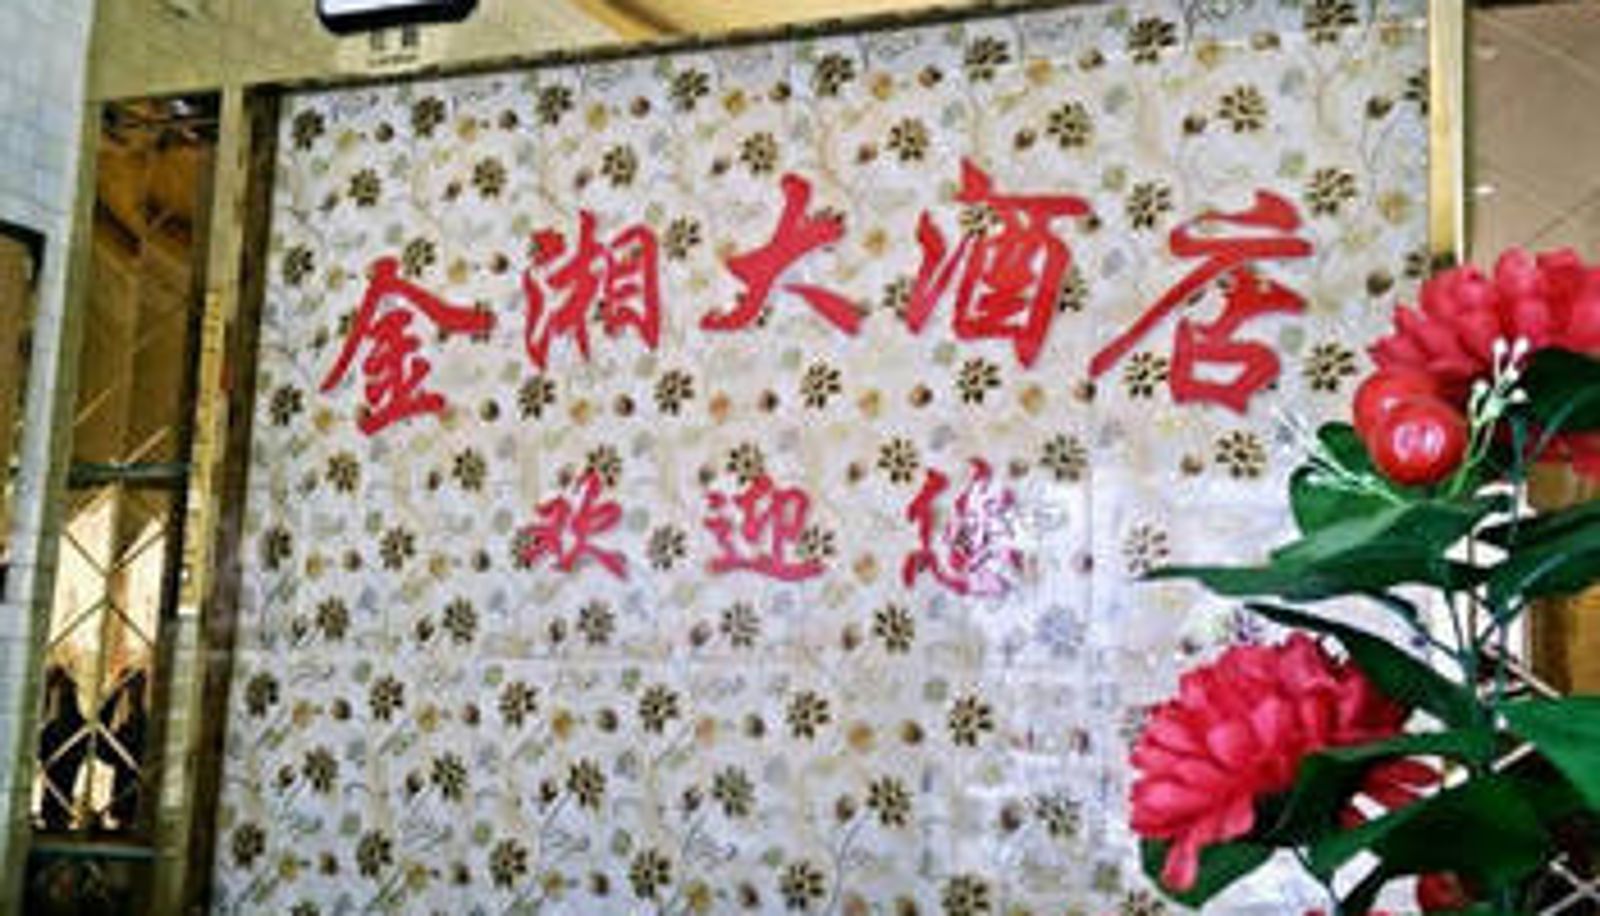 金湘大酒店
欢迎您